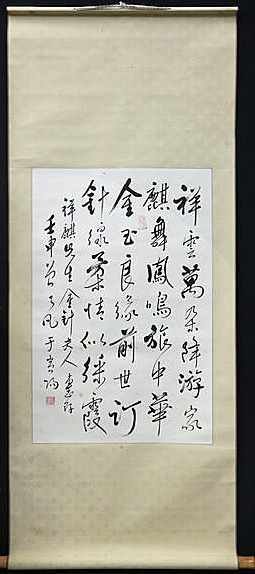 祥雲萬朵降游家
麒舞鳳鳴旅中華
金玉良緣前世訂
針線柔情似彩霞
祥麒先生金針夫人惠存
壬申